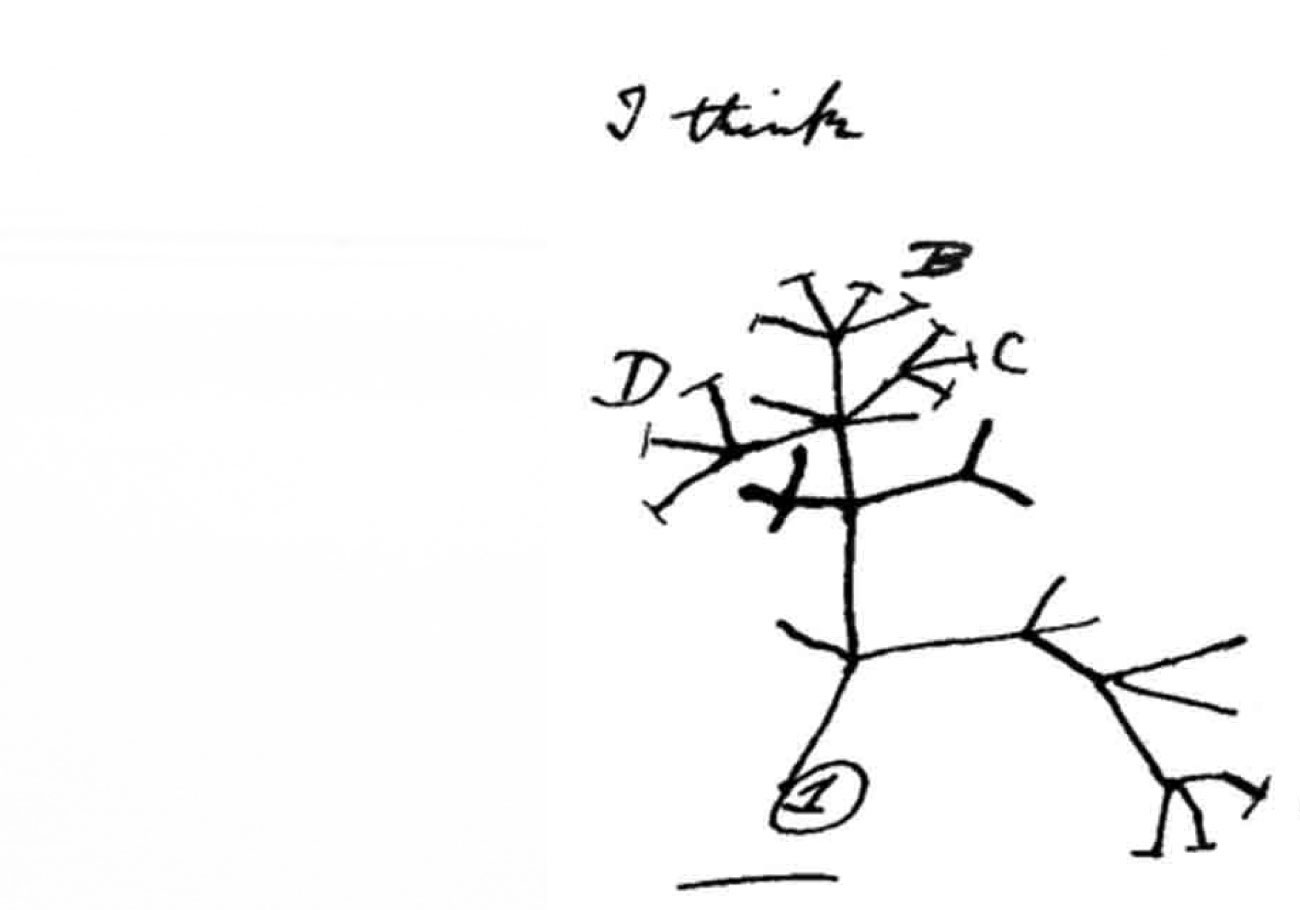 I think
B
C
D
1